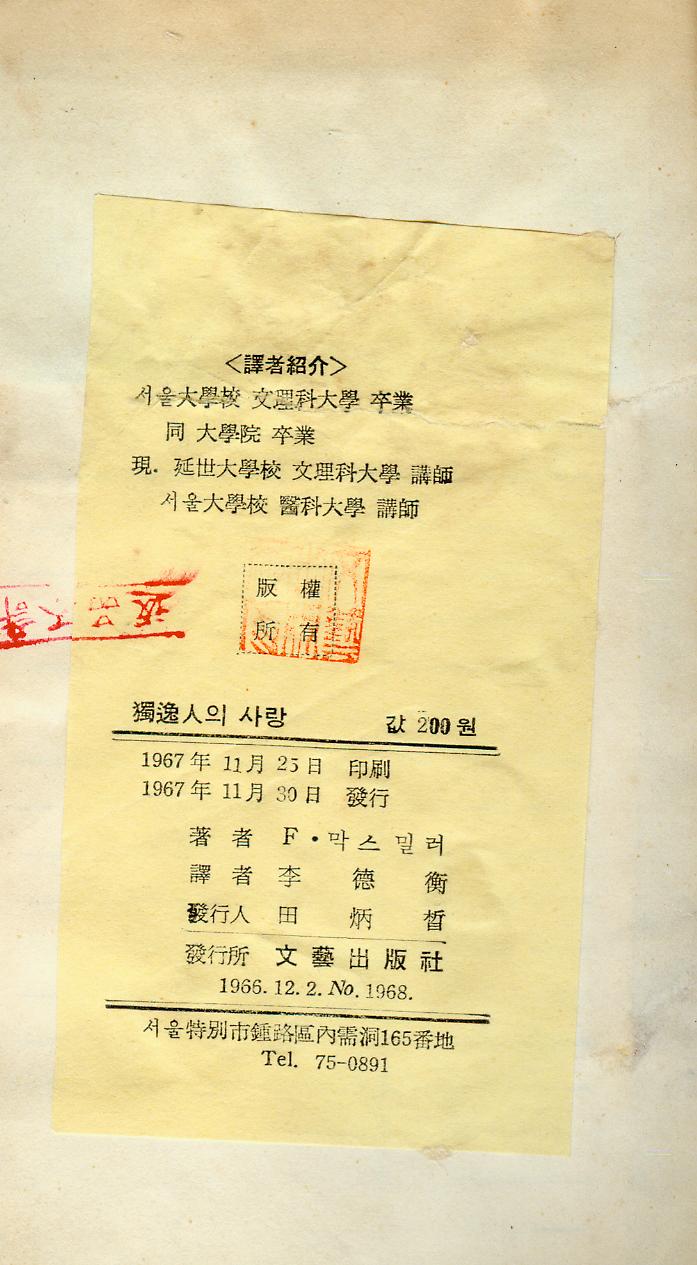 <譯者紹介>
서울大學校 文理科大學 卒業
同 大學院 卒業
現. 延世大學校 文理科大學 講師
서울大學校 醫科大學 講師
版權
所有
獨逸人의 사랑 값 200원
1967年 11月 25日 印刷
1967年 11月 30日 發行
著者 F·막스 밀러
譯者 李德衡
發行人 田炳晳
發行所 文藝出版社
1966. 12. 2. No. 1968.
서울特別市鍾路區內需洞165番地
Tel. 75-0891